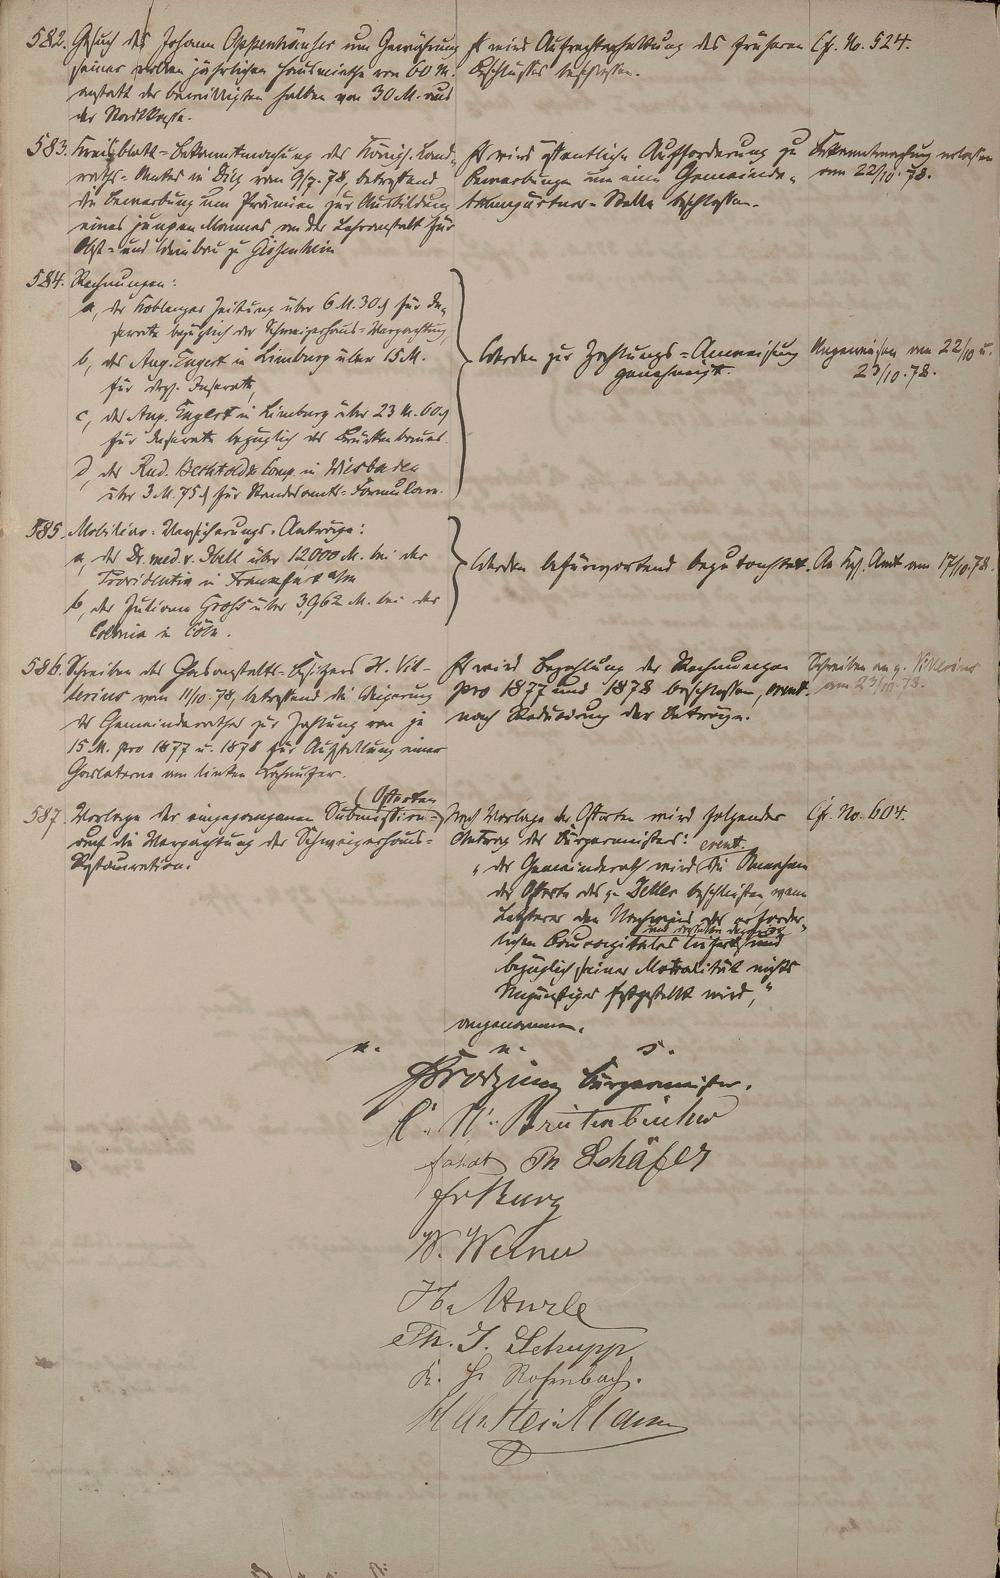 582. Gesuch des Johann Oppenhäuser um Gewährung
seiner vollen jährlichen Hausmiethe von 60 M.
anstatt der bewilligten halben von 30 M. aus
der Stadtkasse.
Es wird Aufrechterhaltung des früheren
Beschlusses beschlossen.
Cfr. No. 524.
583. Kreisblatt-Bekanntmachung des Königl. Land-
raths-Amtes in Diez vom 9/7.78, betreffend
die Bewerbung um Prämien zur Ausbildung
eines jungen Mannes an der Lehranstalt für
Obst- und Weinbau zu Geisenheim
Es wird öffentliche Aufforderung zu
Bewerbungen um eine Gemeinde-
Baumgärtner-Stelle beschlossen.
Bekanntmachung erlassen
am 22/10.78.
584. Rechnungen:
a, der Koblenzer Zeitung über 6 M. 30 ₰ für In-
serate bezüglich der Schweizerhaus-Verpachtung,
b, des Aug. Engert in Limburg über 15 M.
für desgl. Inserate,
c, des Aug. Engert in Limburg über 23 M. 60 ₰
für Inserate bezüglich des Brückenbaues.
d, der Rud. Bechtold & Comp. in Wiesbaden
über 3 M. 75 ₰ für Standesamts-Formulare.
Werden zur Zahlungs-Anweisung
genehmigt.
Angewiesen am 22/10 u.
23/10.78.
585. Mobiliar-Versicherungs-Anträge:
a, des Dr. med. v. Ibell über 12,000 M. bei der
Providentia in Frankfurt a/m
b, der Juliane Groß über 3,962 M. bei der
Colonia in Cöln.
Werden befürwortend begutachtet.
An Kgl. Amt am 17/10.78.
586. Schreiben des Gasanstalts-Besitzers H. Vil-
lerius vom 11/10.78, betreffend die Weigerung
des Gemeinderathes zur Zahlung von je
15 M. pro 1877 u. 1878 für Aufstellung einer
Gaslaterne am linken Lahnufer.
Es wird Bezahlung der Rechnungen
pro 1877 und 1878 beschlossen, event.
nach Reducirung der Beträge.
Schreiben an p. Villerius
am 23/10.78.
587. Vorlage der eingegangenen Submissions-
(Offerten
auf die Verpachtung der Schweizerhaus-
Restauration.
Nach Vorlage der Offerten wird folgender
Antrag des Bürgermeisters:
event.
„der Gemeinderath wird die Annahme
der Offerte des p. Zeller beschließen, wenn
Letzterer den Nachweis des erforder-
lichen Baucapitales liefert und
bezüglich seiner Moralität nichts
Ungünstiges festgestellt wird,“
angenommen.
Cfr. No. 604.
v. u. s.
Bürgermeister.
Th Schäfer
W. Werner
Th. J. Schupp
Rosenbach.